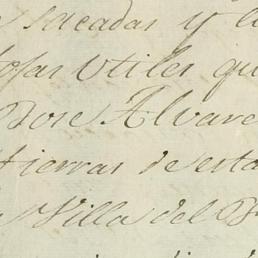 sacadas y
utiles qu
Jose Alvare
tierras de esta
Villa del